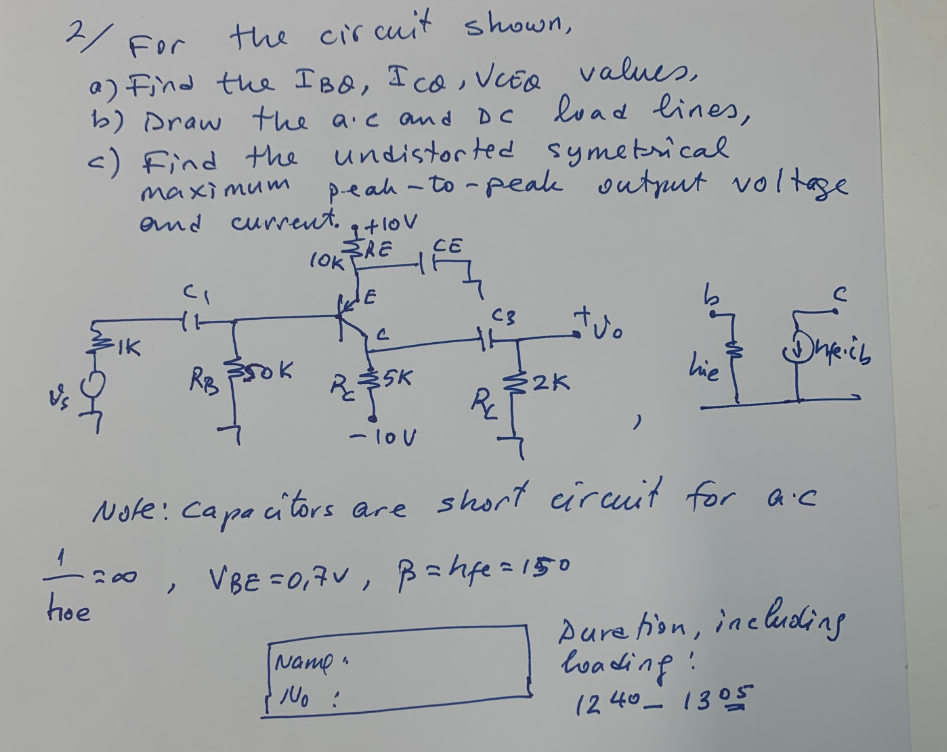 2/ For the circuit shown,
a) Find the IBQ, ICQ, VCEQ values,
b) Draw the a.c and DC load lines,
c) Find the undistorted symetrical
maximum peak-to-peak output voltage
and current.
+10V
10K RE CE
E
C1
C
C3
+Vo
1K
RB 50K
RC 5K
RL 2K
Vs
-10V
b c
hie hfe.ib
,
Note: Capacitors are short circuit for a.c
1/hoe = ∞ , VBE = 0,7V , β = hfe = 150
Name:
No :
Duration, including
loading:
12 40 - 13 05